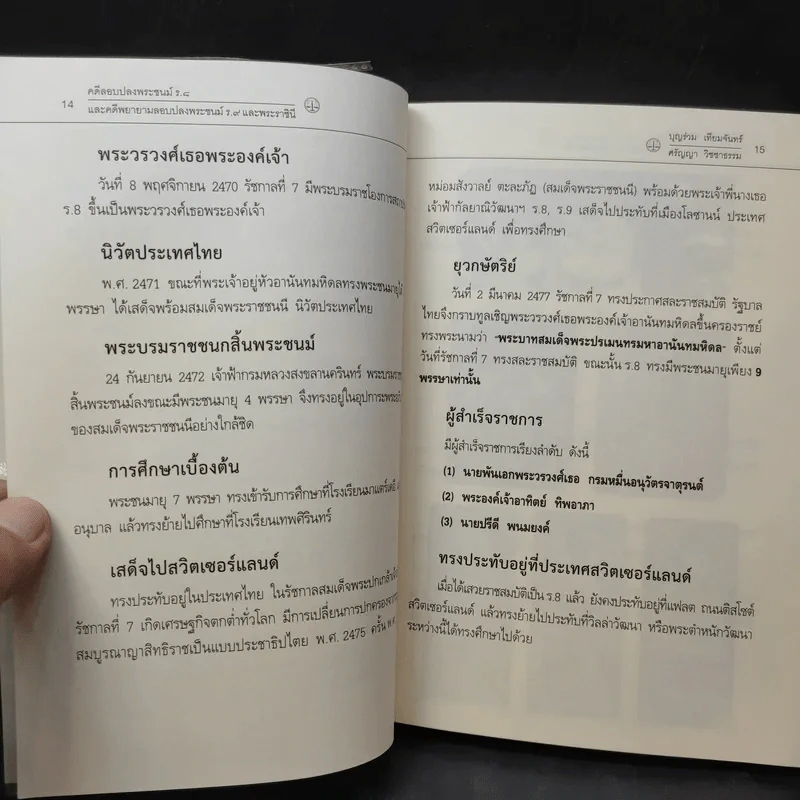 14
คดีลอบปลงพระชนม์ ร.๘
และคดีพยายามลอบปลงพระชนม์ ร.๙ และพระราชินี
พระวรวงศ์เธอพระองค์เจ้า
วันที่ 8 พฤศจิกายน 2470 รัชกาลที่ 7 มีพระบรมราชโองการสถาปนา
ร.8 ขึ้นเป็นพระวรวงศ์เธอพระองค์เจ้า
นิวัตประเทศไทย
พ.ศ. 2471 ขณะที่พระเจ้าอยู่หัวอานันทมหิดลทรงพระชนมายุได้
พรรษา ได้เสด็จพร้อมสมเด็จพระราชชนนี นิวัตประเทศไทย
พระบรมราชชนกสิ้นพระชนม์
24 กันยายน 2472 เจ้าฟ้ากรมหลวงสงขลานครินทร์ พระบรมราช
สิ้นพระชนม์ลงขณะมีพระชนมายุ 4 พรรษา จึงทรงอยู่ในอุปการะ
ของสมเด็จพระราชชนนีอย่างใกล้ชิด
การศึกษาเบื้องต้น
พระชนมายุ 7 พรรษา ทรงเข้ารับการศึกษาที่โรงเรียนมาแตร์เดอี
อนุบาล แล้วทรงย้ายไปศึกษาที่โรงเรียนเทพศิรินทร์
เสด็จไปสวิตเซอร์แลนด์
ทรงประทับอยู่ในประเทศไทย ในรัชกาลสมเด็จพระปกเกล้า
รัชกาลที่ 7 เกิดเศรษฐกิจตกต่ำทั่วโลก มีการเปลี่ยนการปกครองจาก
สมบูรณาญาสิทธิราชเป็นแบบประชาธิปไตย พ.ศ. 2475 ครั้น พ.ศ.
บุญร่วม เทียมจันทร์
ศรัญญา วิชชาธรรม
15
หม่อมสังวาลย์ ตะละภัฏ (สมเด็จพระราชชนนี) พร้อมด้วยพระเจ้าพี่นางเธอ
เจ้าฟ้ากัลยาณิวัฒนาฯ ร.8, ร.9 เสด็จไปประทับที่เมืองโลซานน์ ประเทศ
สวิตเซอร์แลนด์ เพื่อทรงศึกษา
ยุวกษัตริย์
วันที่ 2 มีนาคม 2477 รัชกาลที่ 7 ทรงประกาศสละราชสมบัติ รัฐบาล
ไทยจึงกราบทูลเชิญพระวรวงศ์เธอพระองค์เจ้าอานันทมหิดลขึ้นครองราชย์
ทรงพระนามว่า "พระบาทสมเด็จพระปรเมนทรมหาอานันทมหิดล" ตั้งแต่
วันที่รัชกาลที่ 7 ทรงสละราชสมบัติ ขณะนั้น ร.8 ทรงมีพระชนมายุเพียง 9
พรรษาเท่านั้น
ผู้สำเร็จราชการ
มีผู้สำเร็จราชการเรียงลำดับ ดังนี้
(1) นายพันเอกพระวรวงศ์เธอ กรมหมื่นอนุวัตรจาตุรนต์
(2) พระองค์เจ้าอาทิตย์ ทิพอาภา
(3) นายปรีดี พนมยงค์
ทรงประทับอยู่ที่ประเทศสวิตเซอร์แลนด์
เมื่อได้เสวยราชสมบัติเป็น ร.8 แล้ว ยังคงประทับอยู่ที่แฟลต ถนนติสโซต์
สวิตเซอร์แลนด์ แล้วทรงย้ายไปประทับที่วิลล่าวัฒนา หรือพระตำหนักวัฒนา
ระหว่างนี้ได้ทรงศึกษาไปด้วย